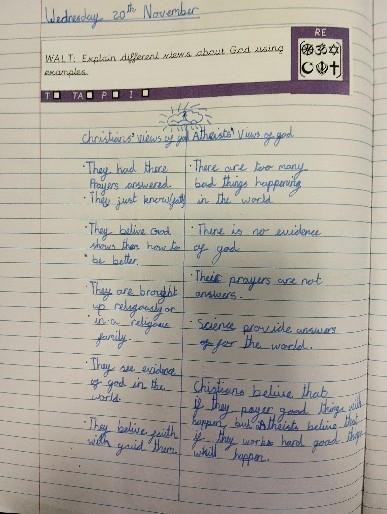 Wednesday 20th November
RE
WALT: Explain different views about God using
examples.
T TA P I
Christians' views of god
· They had there
Prayers answered.
· They just know (faith)
· They belive God
shows them how to
be better.
· They are brought
up religiously or
in a religious
family.
· They see evidence
of god in the
world.
· They belive faith
will guid them.
Atheists' Views of god
· There are too many
bad things happening
in the world.
· There is no evidence
of god
· Their prayers are not
answers.
· Science provide answers
for the world.
Chistians belive that
if they prayer good things will
happen but Atheists belive that
if they works hard good things
will happen.